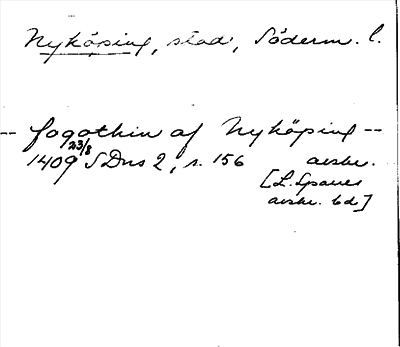 Nyköping, stad, Söderm. l.
-- fogothin af Nyköping --
23/8
1409 SDns 2, s. 156 avskr.
[L. Spaues
avskr. bd]